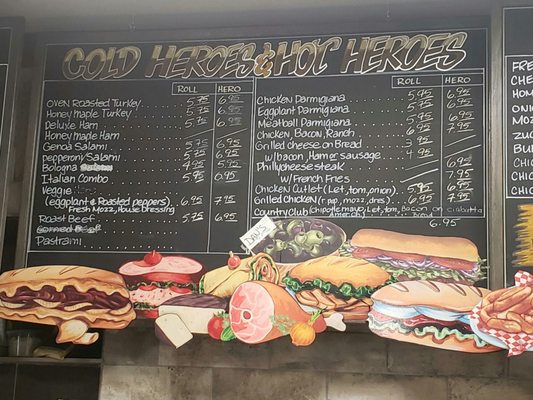 COLD HEROES & HOT HEROES
ROLL HERO
Oven Roasted Turkey 5.75 6.95
Honey Maple Turkey 5.75 6.95
Deluxe Ham
Honey Maple Ham
Genoa Salami 5.75 6.95
pepperoni Salami 5.75 6.95
Bologna 4.95 5.75
Italian Combo 5.95 6.95
Veggie
(eggplant & Roasted peppers) 6.95 7.95
Fresh Mozz, House Dressing
Roast Beef 5.75 6.95
Corned Beef
Pastrami
ROLL HERO
Chicken Parmigiana 5.95 6.95
Eggplant Parmigiana 5.75 6.95
Meatball Parmigiana 5.95 6.95
Chicken, Bacon, Ranch 6.95 7.95
Grilled cheese on Bread 3.95
w/bacon, Ham or sausage 4.95
Philly cheese steak 6.95
w/French Fries 7.95
Chicken Cutlet (Let, tom, onion) 5.95 6.95
Grilled Chicken (r.pep, mozz, drss) 6.95 7.95
Country Club (chipotle mayo, Let, tom, Bacon on ciabatta
Bread
6.95
DAVIS
FRE
CHE
HOM
ONIO
MOZ
ZUC
BU
CHIC
CHIC
CHIC